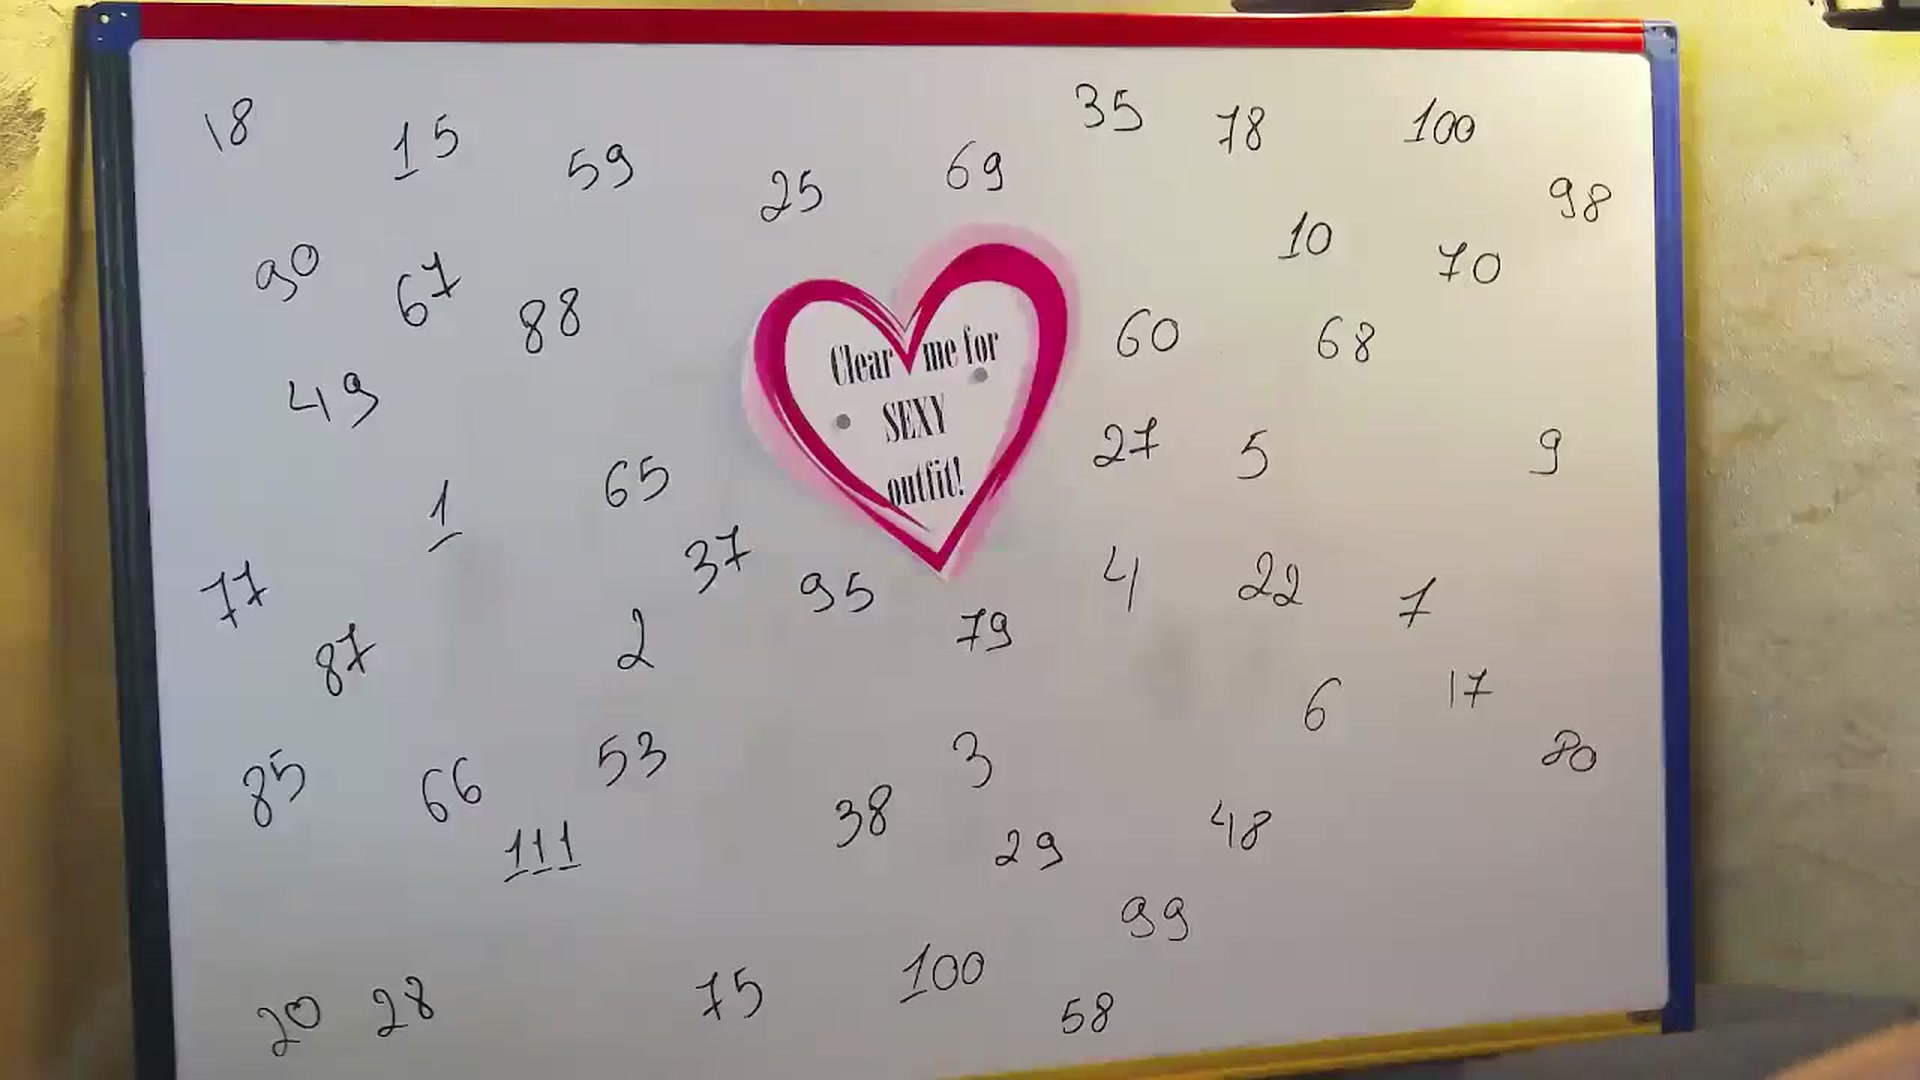 18
15
59
25
69
35
78
100
98
90
67
88
10
70
49
60
68
Clear me for
SEXY
outfit!
65
27
5
9
1
37
77
95
4
22
7
87
2
79
6
17
85
66
53
3
80
111
38
29
48
99
20
28
75
100
58